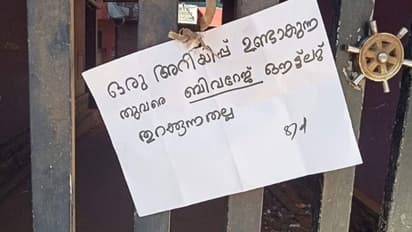 ഒരു അറിയിപ്പ് ഉണ്ടാകുന്ന
തുവരെ ബിവറേജ് ഔട്ട്ലറ്റ്
തുറക്കുന്നതല്ല